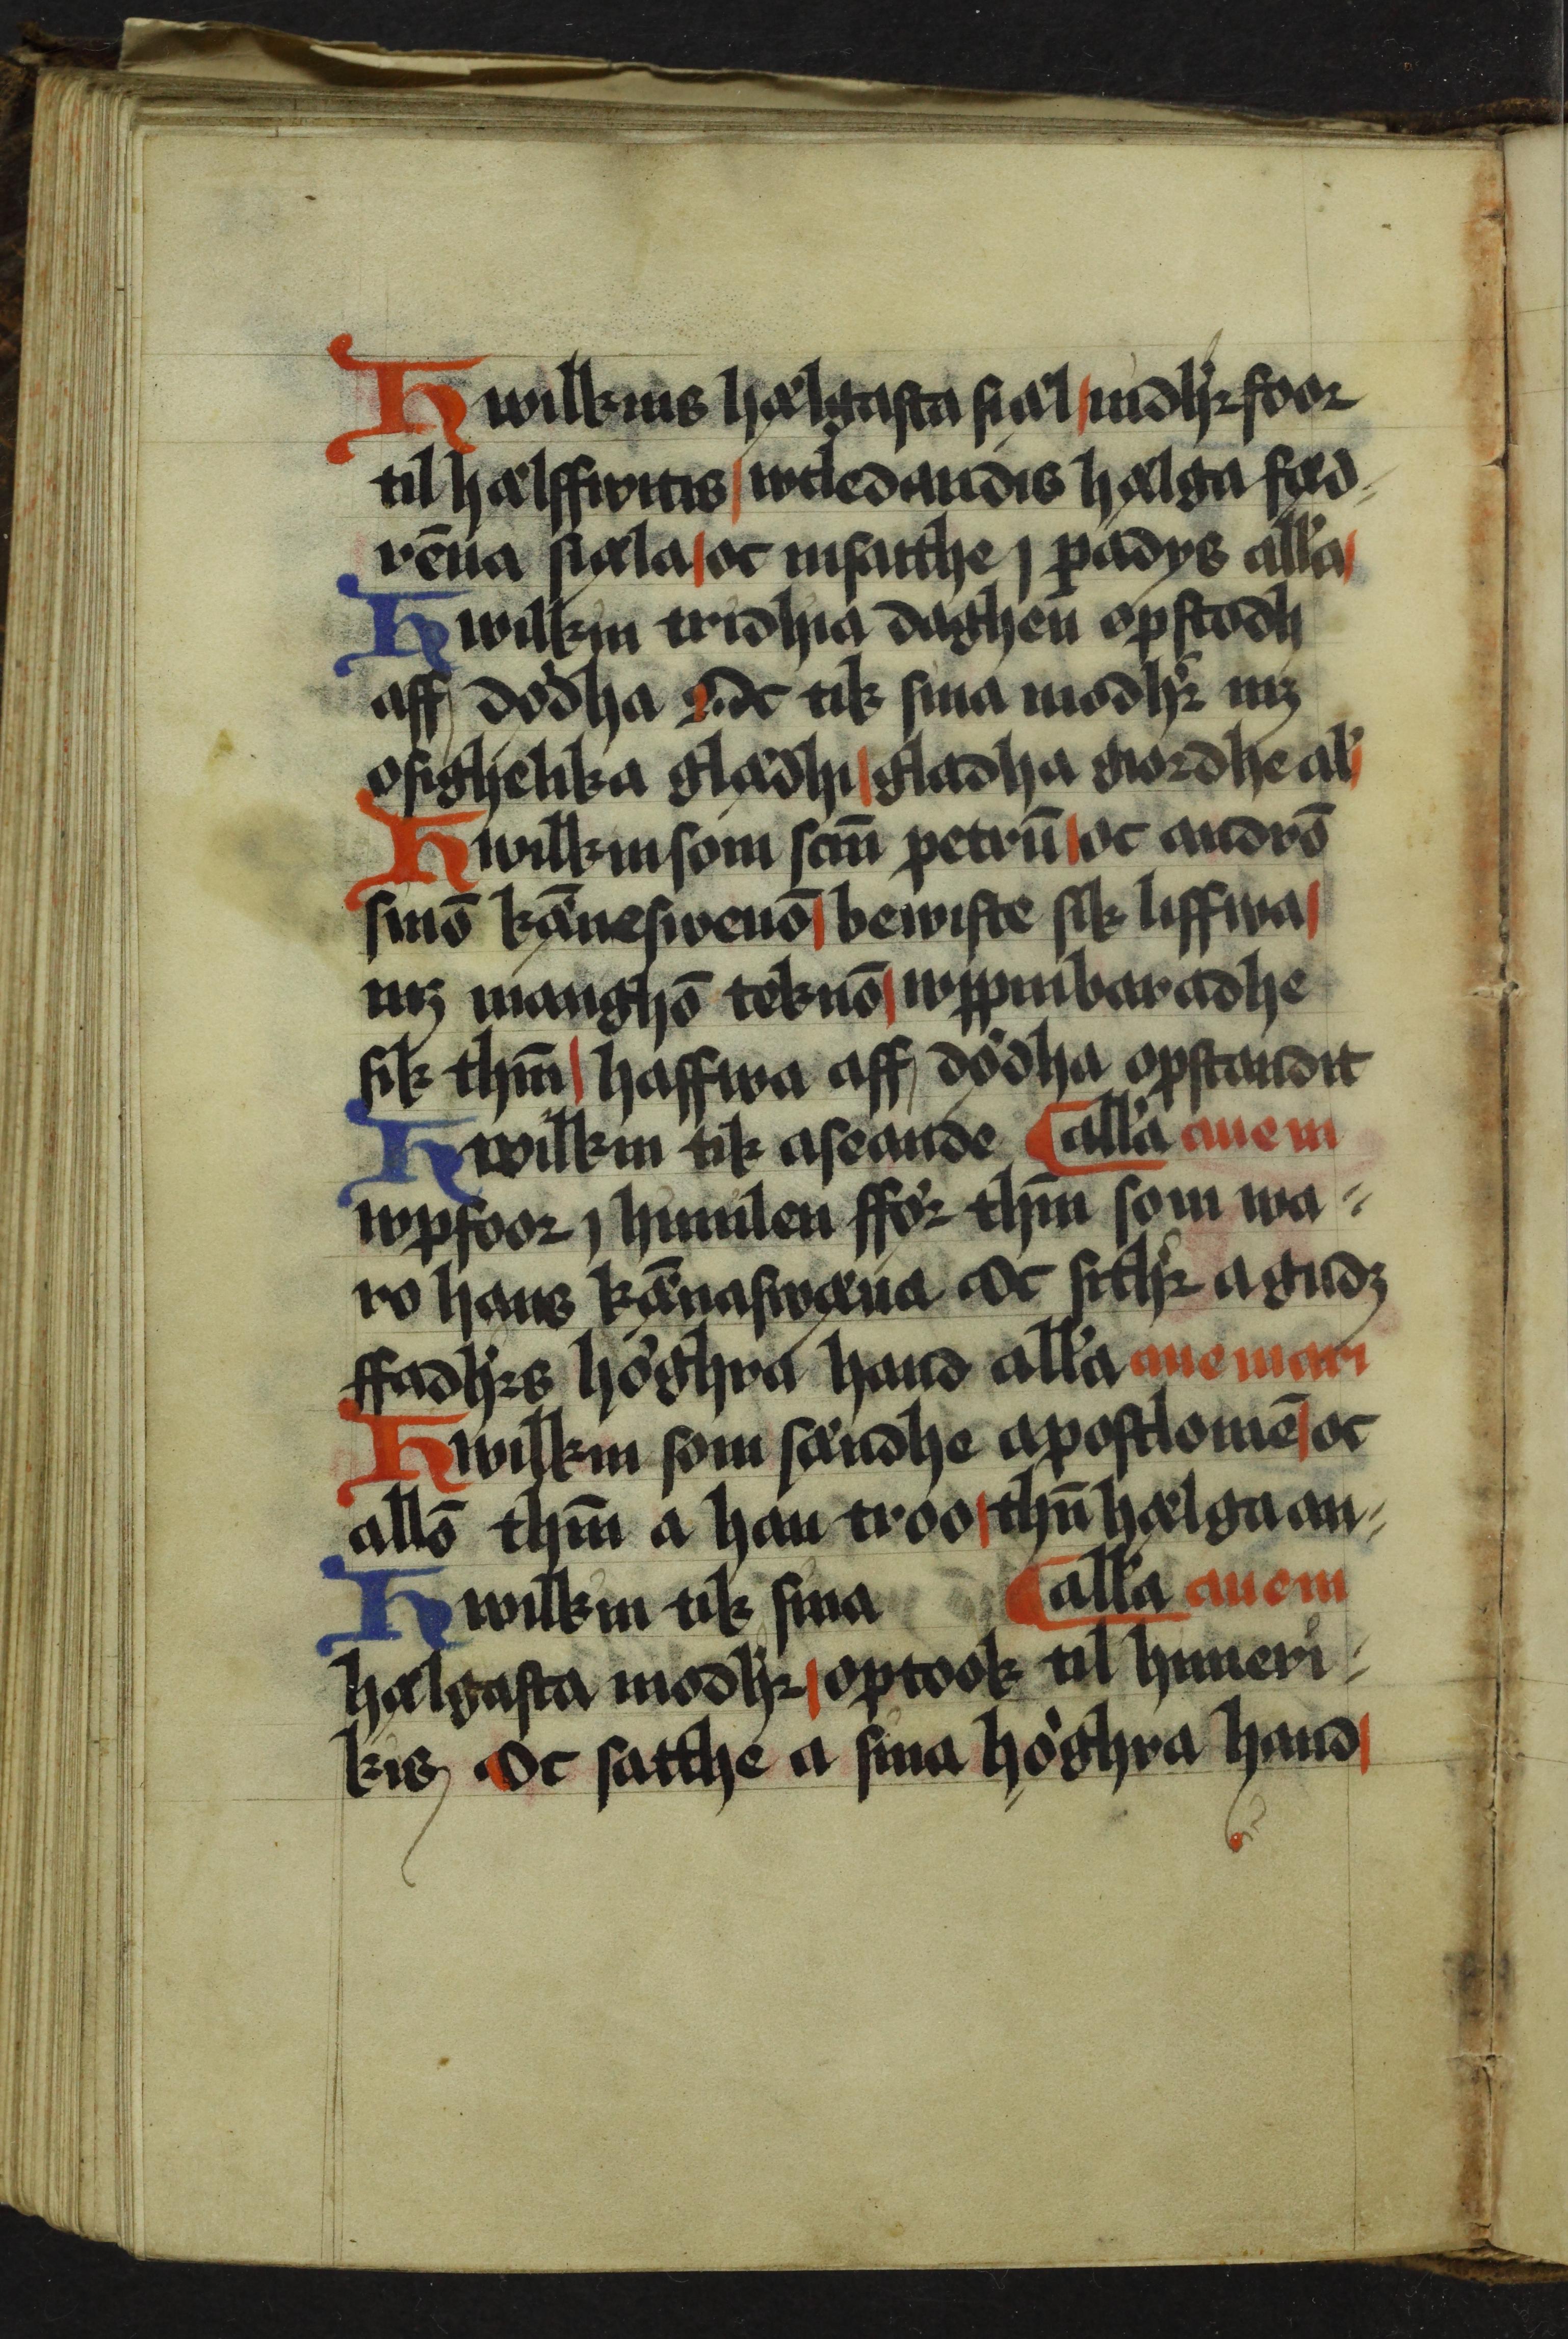 Hwilkins hælgasta siæl nidhꝛ foor
til hælffwitis wtledandis hælga fæd-
rēna siæla oc insatthe j padys all'a
Hwilkin tridhia daghen opstodh
aff dödha Oc tik sina modhꝛ mꝫ
osighelika glädhi gladha giordhe al'
Hwilkin som scm̄ petrū oc andrō
sinō kāneswenō bewiste sik liffwa
mꝫ manghō teknō wppinbaradhe
sik thm̄ haffwa aff dödha opstandit
Hwilkin tik aseande all'a aue m
wpfoor j himilen fför thm̄ som wa-
ro hans kānaswæna Oc sithꝛ a gudꝫ
ffadhꝛs höghra hand all'a aue mari
Hwilkin som sændhe apostlomē oc
allō thm̄ a han troo thn̄ hælga an-
Hwilkin tik sina all'a aue m
hælgasta modhꝛ optook til himeri-
kis Oc satthe a sina höghra hand